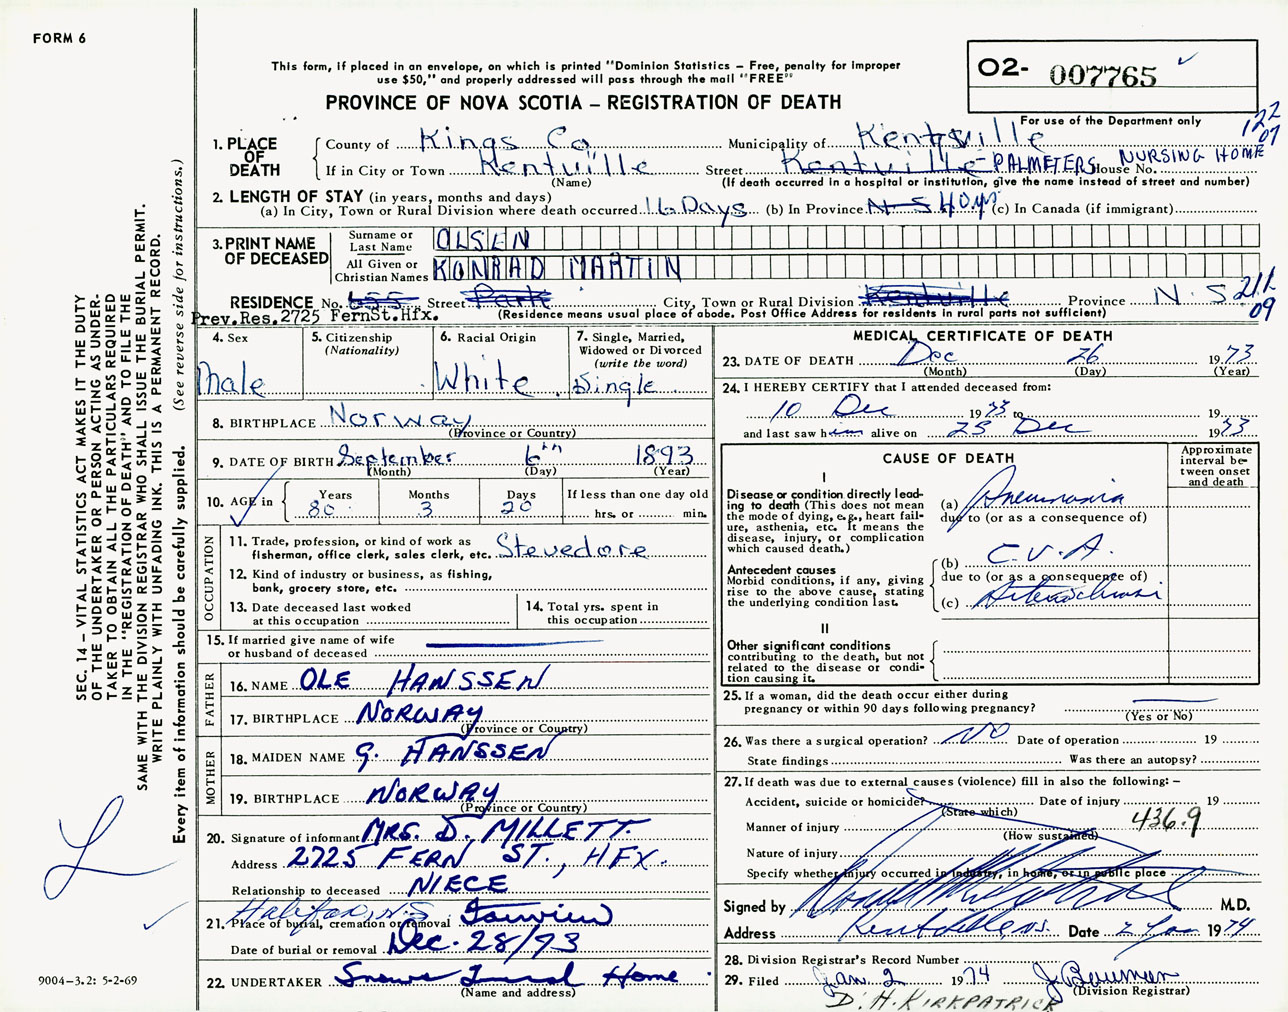 FORM 6
This form, if placed in an envelope, on which is printed "Dominion Statistics – Free, penalty for improper
use $50," and properly addressed will pass through the mail "FREE"
PROVINCE OF NOVA SCOTIA – REGISTRATION OF DEATH
02- 007765
For use of the Department only
122
07
1. PLACE OF DEATH
County of Kings Co Municipality of Kentville
If in City or Town Kentville Street Kentville - PALMETERS NURSING HOME House No.
(Name) (If death occurred in a hospital or institution, give the name instead of street and number)
2. LENGTH OF STAY (in years, months and days)
(a) In City, Town or Rural Division where death occurred 16 Days (b) In Province N S 40 yr (c) In Canada (if immigrant)
3. PRINT NAME OF DECEASED
Surname or Last Name OLSEN
All Given or Christian Names KONRAD MARTIN
RESIDENCE No. 655 Street Park City, Town or Rural Division Kentville Province N.S. 211
09
Prev.Res.2725 FernSt.Hfx. (Residence means usual place of abode. Post Office Address for residents in rural parts not sufficient)
4. Sex Male
5. Citizenship (Nationality)
6. Racial Origin White
7. Single, Married, Widowed or Divorced (write the word) Single
8. BIRTHPLACE Norway
(Province or Country)
9. DATE OF BIRTH September 6th 1893
(Month) (Day) (Year)
10. AGE in Years 80 Months 3 Days 20 If less than one day old hrs. or min.
OCCUPATION
11. Trade, profession, or kind of work as fisherman, office clerk, sales clerk, etc. Stevedore
12. Kind of industry or business, as fishing, bank, grocery store, etc.
13. Date deceased last worked at this occupation
14. Total yrs. spent in this occupation
15. If married give name of wife or husband of deceased
FATHER
16. NAME OLE HANSSEN
17. BIRTHPLACE NORWAY
(Province or Country)
MOTHER
18. MAIDEN NAME G. HANSSEN
19. BIRTHPLACE NORWAY
(Province or Country)
20. Signature of informant MRS. D. MILLETT
Address 2725 FERN ST., HFX.
Relationship to deceased NIECE
Halifax, N.S.
21. Place of burial, cremation or removal Fairview
Date of burial or removal Dec. 28/73
22. UNDERTAKER Snows Funeral Home
(Name and address)
MEDICAL CERTIFICATE OF DEATH
23. DATE OF DEATH Dec 26 1973
(Month) (Day) (Year)
24. I HEREBY CERTIFY that I attended deceased from:
10 Dec 1973 to 19
and last saw him alive on 25 Dec 1973
CAUSE OF DEATH
Approximate interval between onset and death
I
Disease or condition directly leading to death (This does not mean the mode of dying, e.g., heart failure, asthenia, etc. It means the disease, injury, or complication which caused death.)
(a) Pneumonia
due to (or as a consequence of)
Antecedent causes
Morbid conditions, if any, giving rise to the above cause, stating the underlying condition last.
(b) C.V.A.
due to (or as a consequence of)
(c)
II
Other significant conditions
contributing to the death, but not related to the disease or condition causing it.
25. If a woman, did the death occur either during
pregnancy or within 90 days following pregnancy?
(Yes or No)
26. Was there a surgical operation? NO Date of operation 19
State findings Was there an autopsy?
27. If death was due to external causes (violence) fill in also the following: –
Accident, suicide or homicide? Date of injury 19
(State which)
Manner of injury 436.9
(How sustained)
Nature of injury
Specify whether injury occurred in industry, in home, or in public place
Signed by M.D.
Address Kentville, N.S. Date 2 Jan 1974
28. Division Registrar's Record Number
29. Filed Jan. 2 1974 J. Bowman
(Division Registrar)
D. H. KIRKPATRICK
SEC. 14 – VITAL STATISTICS ACT MAKES IT THE DUTY
OF THE UNDERTAKER OR PERSON ACTING AS UNDER-
TAKER TO OBTAIN ALL THE PARTICULARS REQUIRED
IN THE "REGISTRATION OF DEATH" AND TO FILE THE
SAME WITH THE DIVISION REGISTRAR WHO SHALL ISSUE THE BURIAL PERMIT.
WRITE PLAINLY WITH UNFADING INK. THIS IS A PERMANENT RECORD.
Every item of information should be carefully supplied. (See reverse side for instructions.)
9004–3.2: 5-2-69